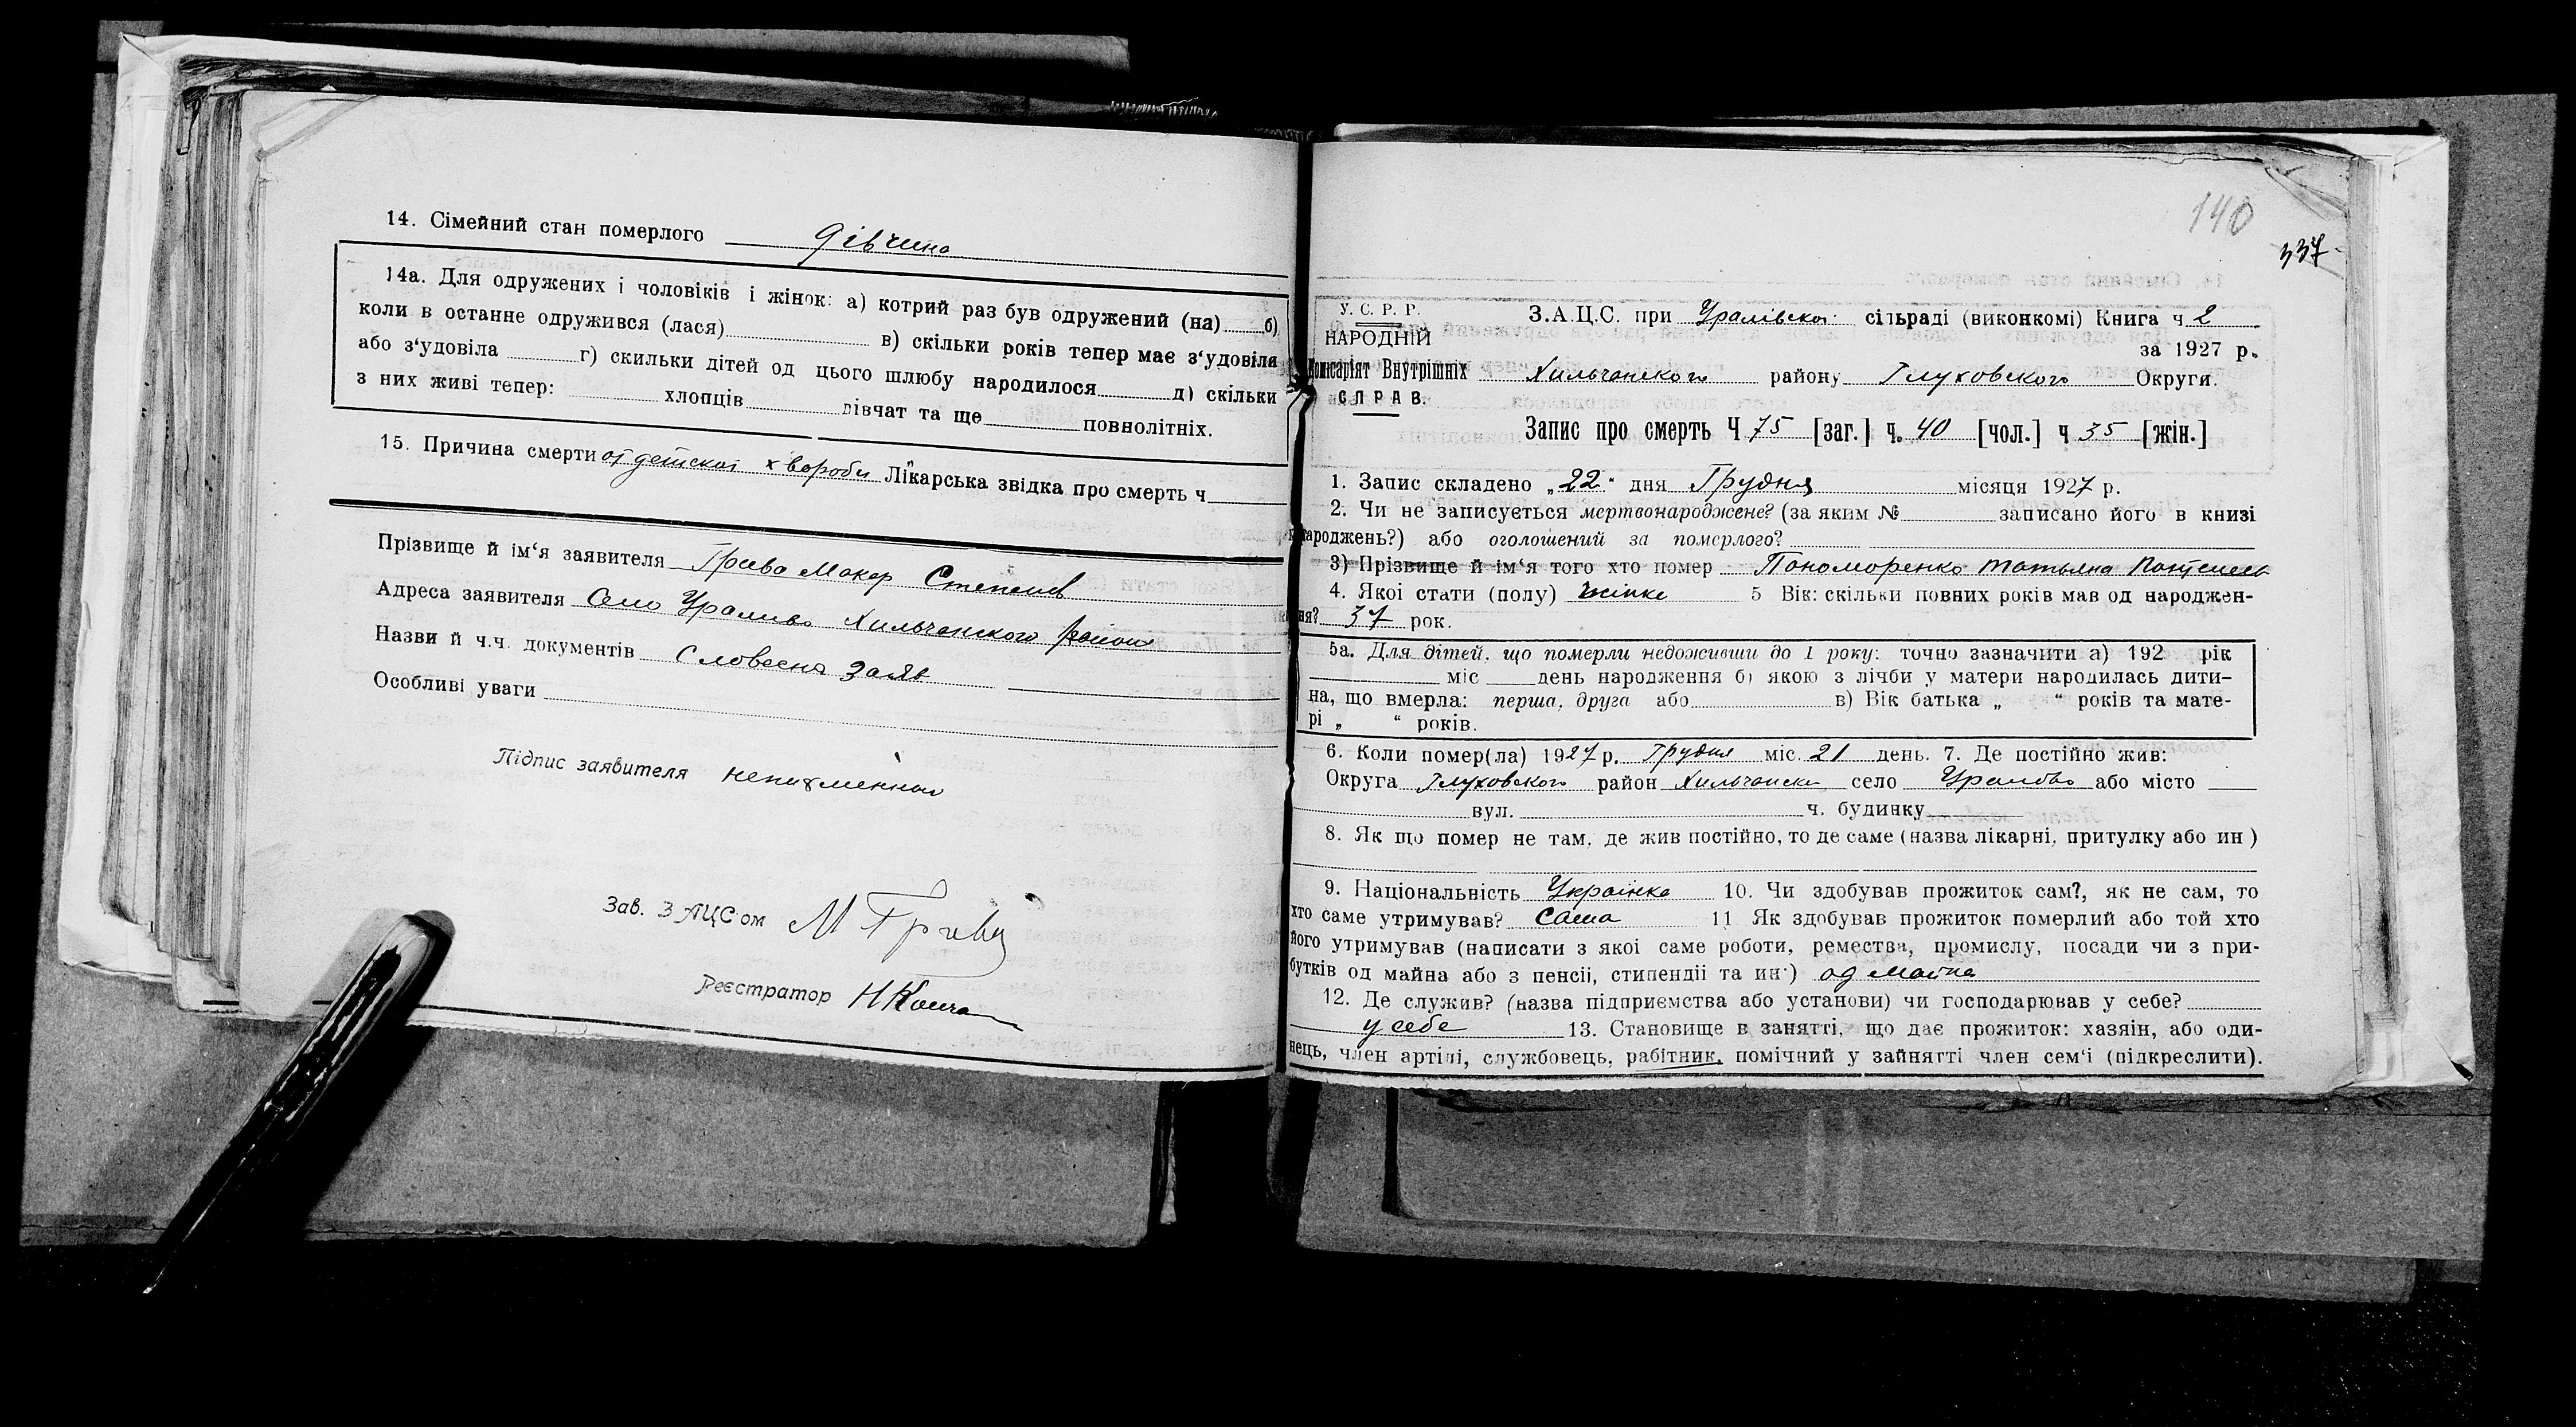 14. Сімейний стан померлого дівчина
14а. Для одружених і чоловіків і жінок: а) котрий раз був одружений (на) б)
коли в останне одружився (лася) в) скільки років тепер має з'удовіла
або з'удовіла г) скильки дітей од цього шлюбу народилося д) скільки
з них живі тепер: хлопців дівчат та ще повнолітніх.
15. Причина смерти от детскоі хвороби Лікарська звідка про смерть ч
Прізвище й ім'я заявителя Грива Макар Степанов
Адреса заявителя Село Ураливо Хильчанского район
Назви й ч.ч. документів Словесна заяв
Особливі уваги
Підпис заявителя неписменная
Зав. ЗАЦС'ом М Грива
Реєстратор Н
140
337
У. С. Р. Р.
НАРОДНІЙ
Комісаріят Внутрішніх
СПРАВ.
З.А.Ц.С. при Уралівскоі сільраді (виконкомі) Книга ч 2
за 1927 р.
Хильчанского району Глуховского Округи.
Запис про смерть Ч 75 [заг.] ч. 40 [чол.] ч 35 [жін.]
1. Запис складено „22" дня Грудня місяця 1927 р.
2. Чи не записується мертвонароджене? (за яким № записано його в книзі
народжень?) або оголошений за померлого?
3) Прізвище й ім'я того хто помер Пономоренко Татьяна
4. Якої стати (полу) жінка 5 Вік: скільки повних років мав од народжен-
ня? 37 рок.
5а. Для дітей, що померли недоживши до 1 року: точно зазначити а) 192 рік
міс день народження б) якою з лічби у матери народилась дити-
на, що вмерла: перша, друга або в) Вік батька „ " років та мате-
рі „ " років.
6. Коли помер(ла) 1927 р. Грудня міс. 21 день. 7. Де постійно жив:
Округа Глуховского район Хильчански село Уралово або місто
вул. ч. будинку
8. Як що помер не там, де жив постійно, то де саме (назва лікарні, притулку або ин )
9. Національність Українка 10. Чи здобував прожиток сам?, як не сам, то
хто саме утримував? Сама 11 Як здобував прожиток померлий або той хто
його утримував (написати з якоі саме роботи, ремества, промислу, посади чи з при-
бутків од майна або з пенсіі, стипендіі та ин·) од майна
12. Де служив? (назва підприємства або установи) чи господарював у себе?
у себе 13. Становище в занятті, що дає прожиток: хазяін, або оди-
нець, член артілі, службовець, рабітник, помічний у зайнятті член сем'і (підкреслити).